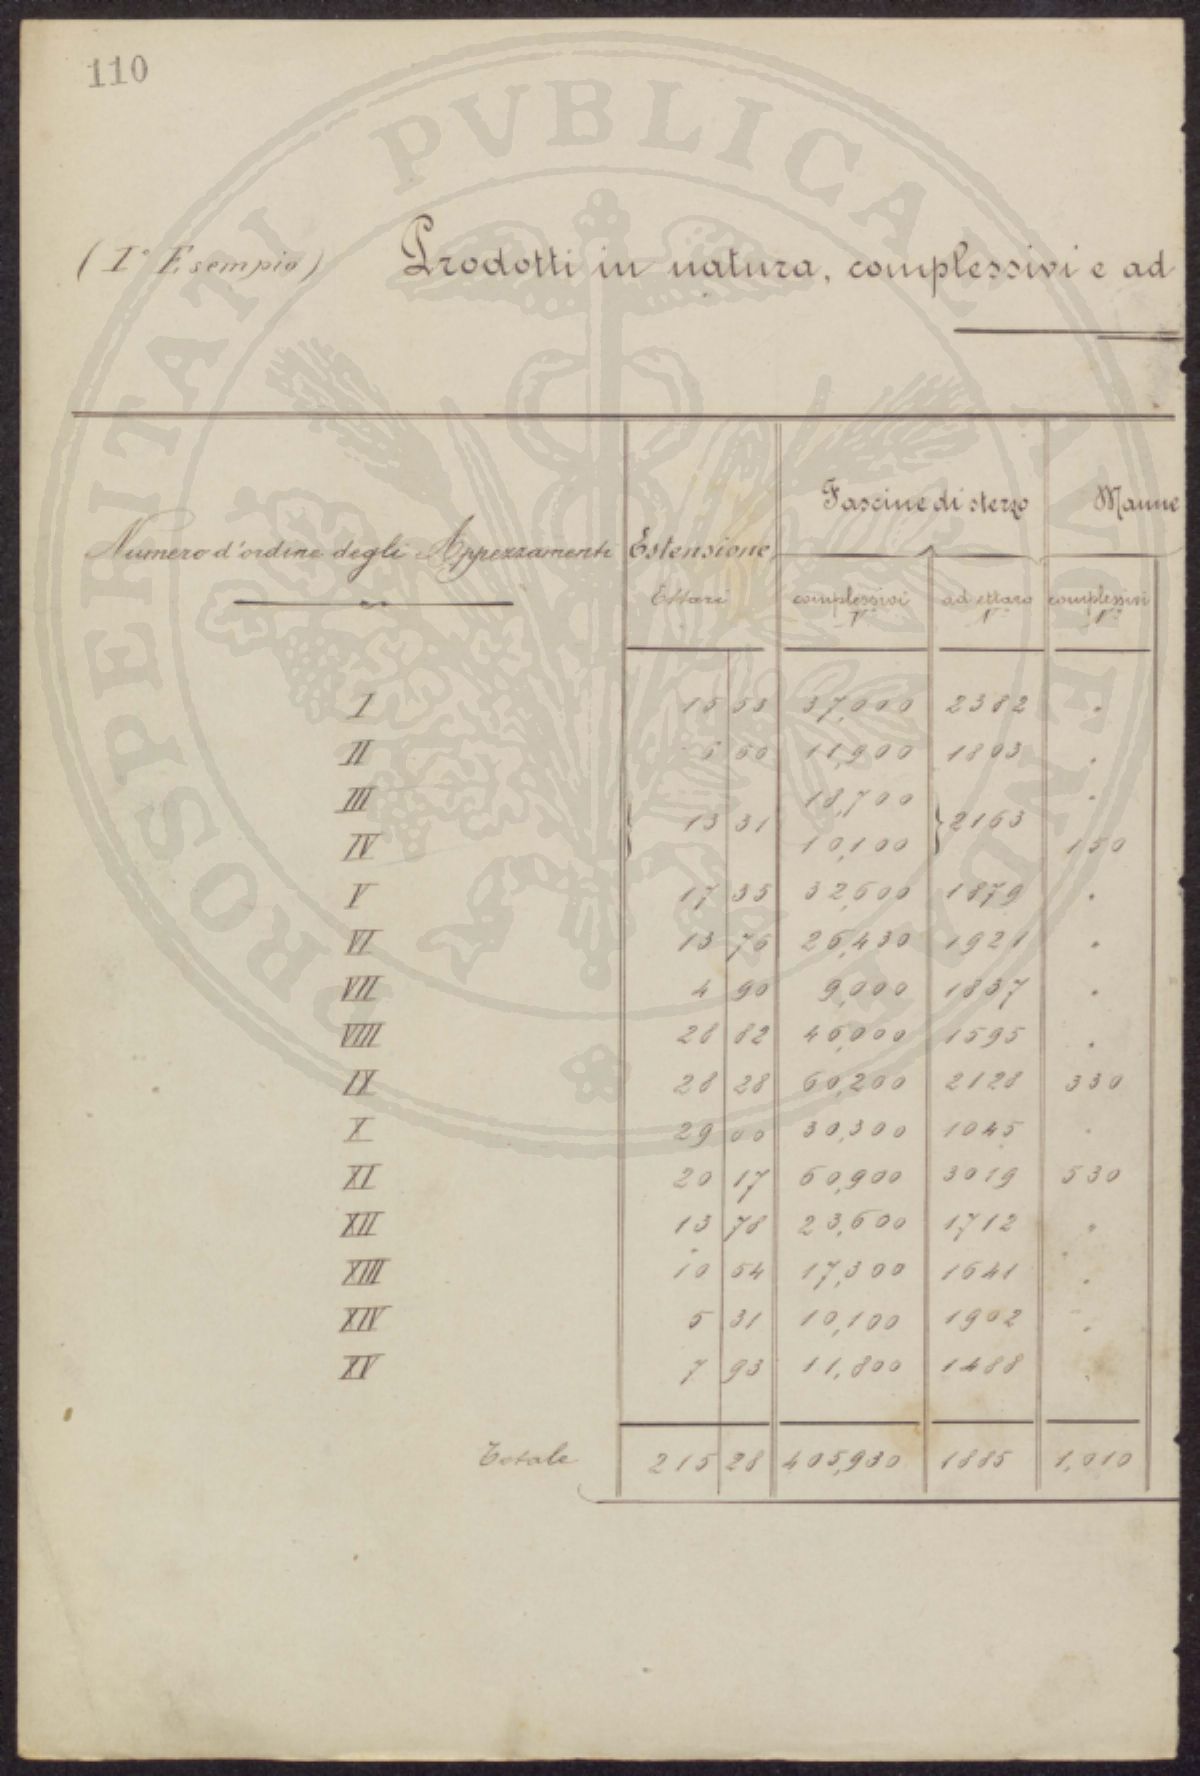 110
PROSPERITATI PVBLICAE AVGENDAE
(I° Esempio) Prodotti in natura, complessivi e ad
Numero d'ordine degli Appezzamenti Estensione Fascine di sterzo Manne
Ettari complessivi N° ad ettaro N° complessivi N°
I 15 53 37,000 2382 "
II 6 60 11,900 1803 "
III 18,700 "
13 31 2163
IV 10,100 150
V 17 35 32,600 1879 "
VI 13 76 26,430 1921 "
VII 4 90 9,000 1837 "
VIII 28 82 46,000 1595 "
IX 28 28 60,200 2128 330
X 29 00 30,300 1045 "
XI 20 17 60,900 3019 530
XII 13 78 23,600 1712 "
XIII 10 54 17,300 1641 "
XIV 5 31 10,100 1902 "
XV 7 93 11,800 1488
Totale 215 28 405,930 1885 1,010